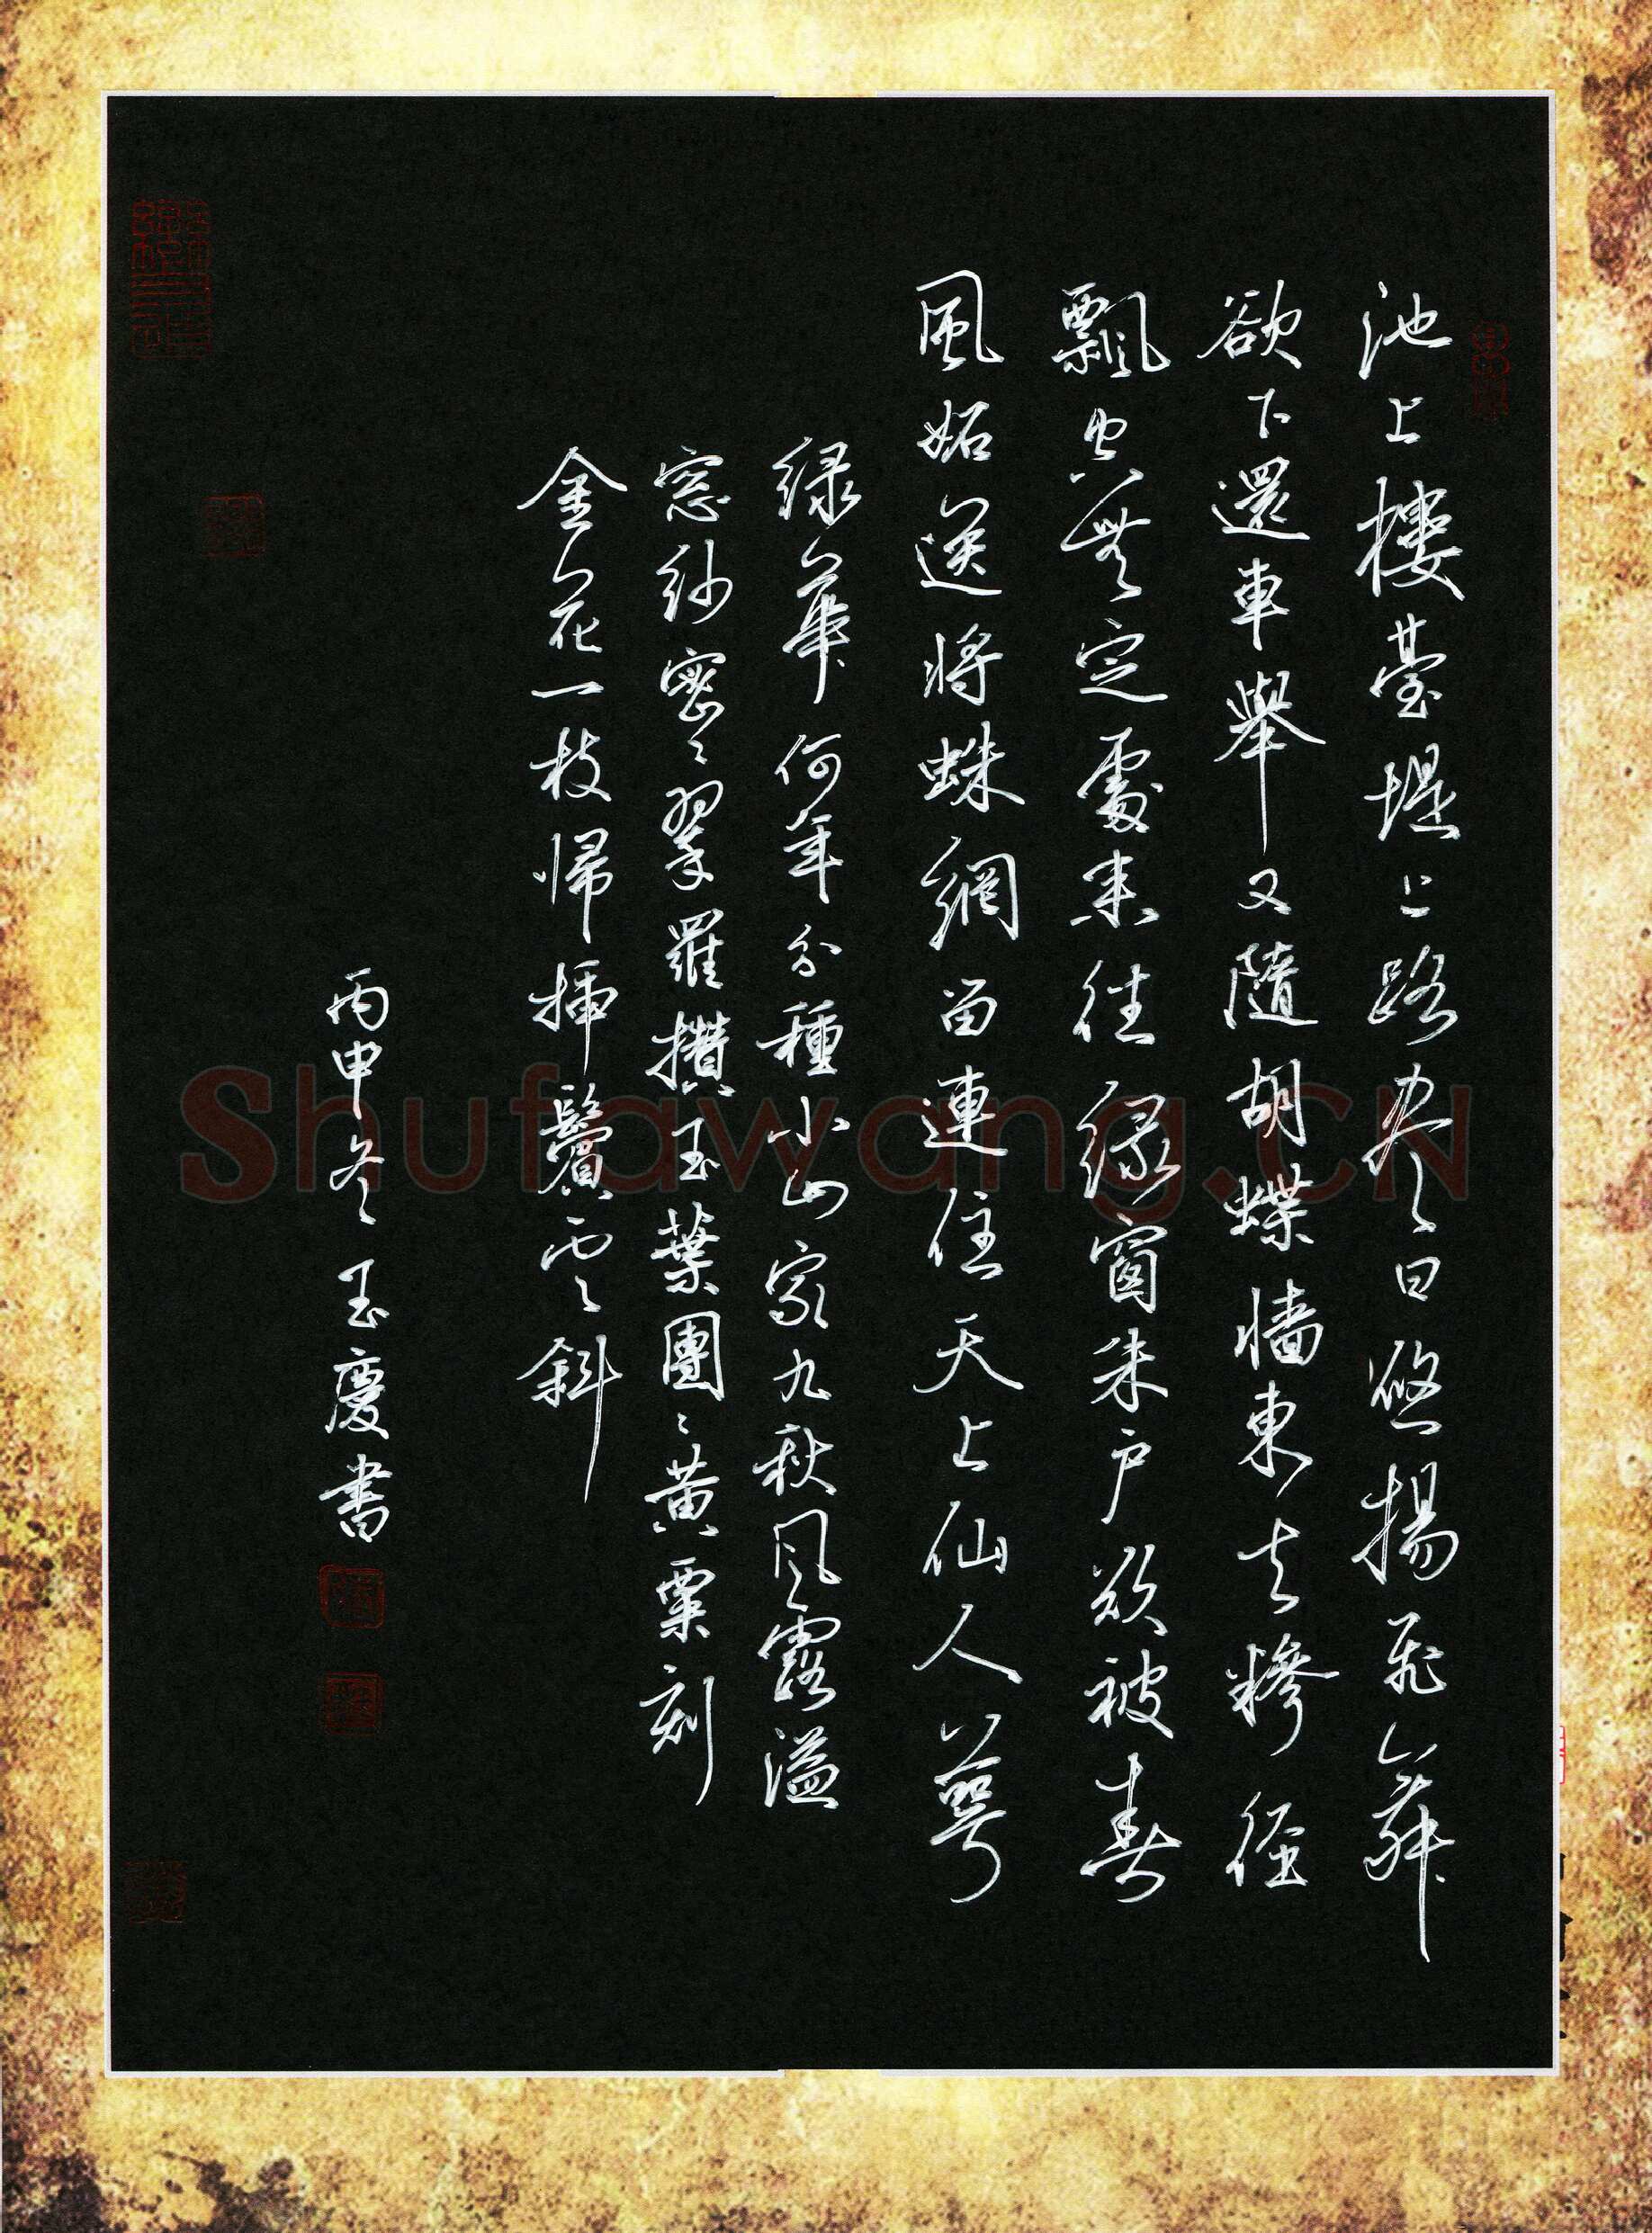 池上樓臺堤上路尽日悠揚飛舞
欲下還重舉又隨胡蝶牆東去糝徑
飄空無定處來往緑窗朱戶欲被春
風妬送將蛛網留連住天上仙人萼
緑華何年分種小山家九秋风露溢
窓紗密〻翠羅攢玉葉團〻黃粟刻
金花一枝帰插鬢雲斜
丙申冬玉慶書
Shufawang.CN